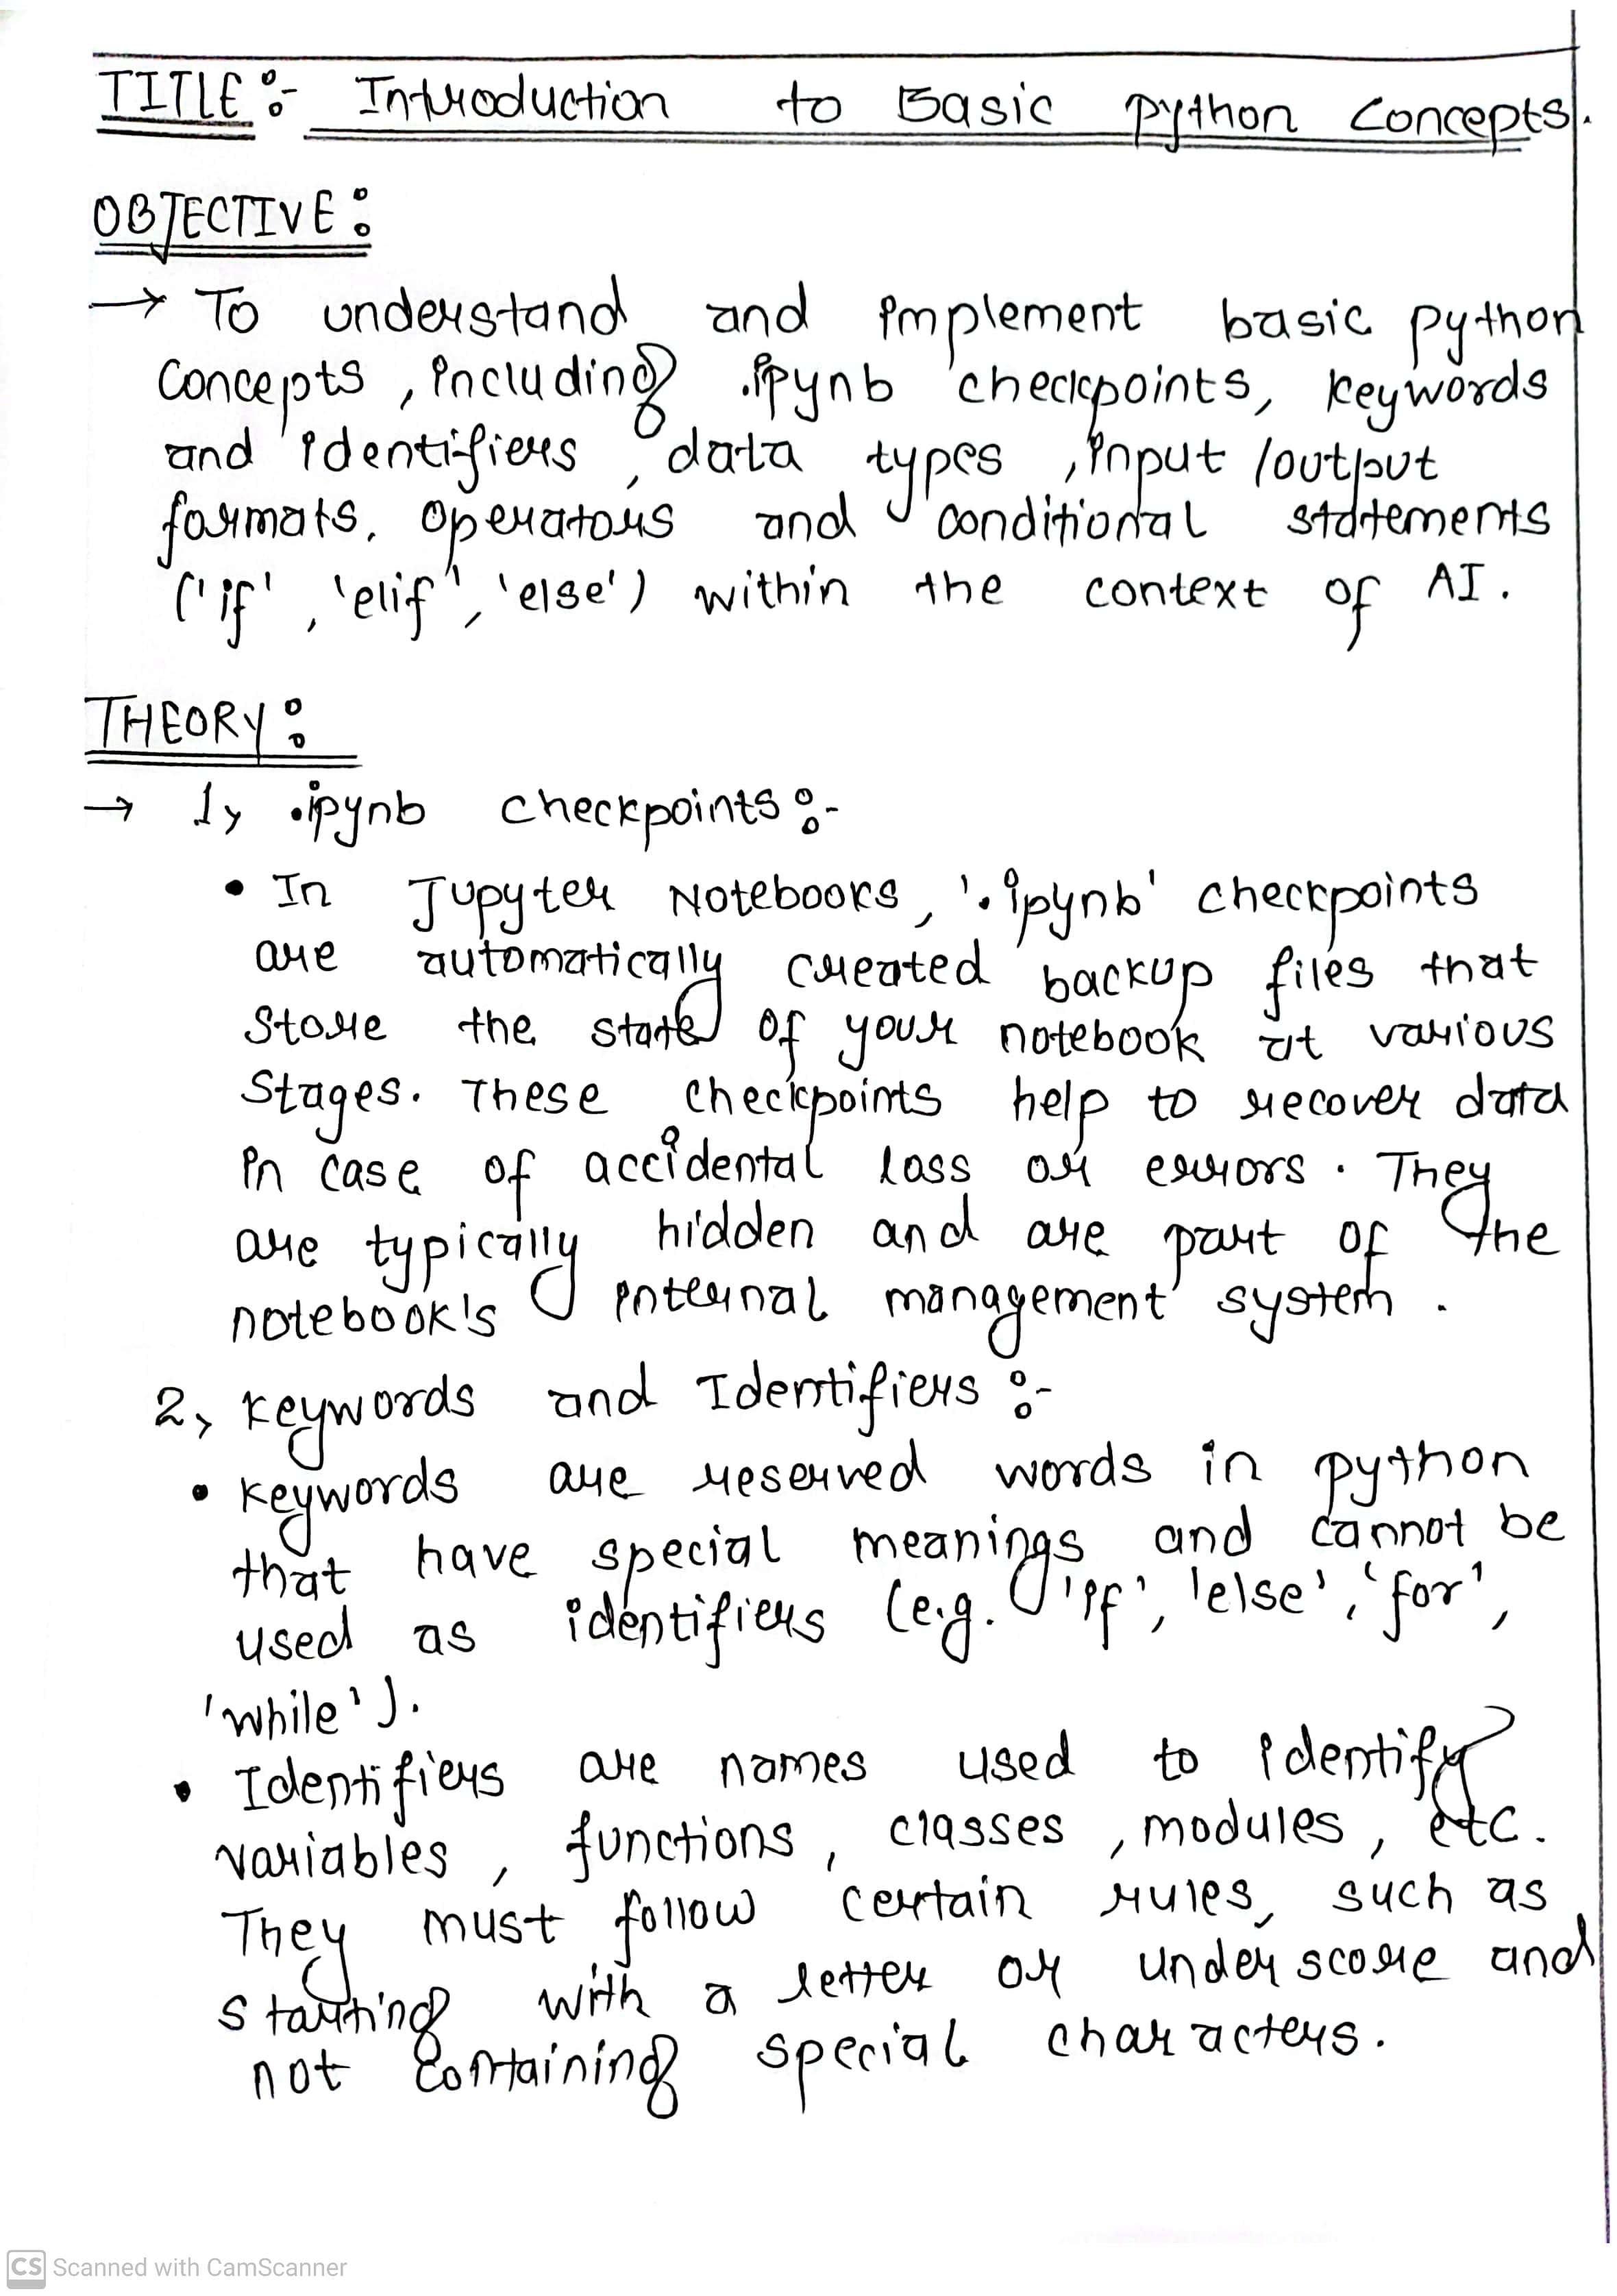 TITLE :- Introduction to Basic python concepts.
OBJECTIVE :
→ To understand and implement basic python
concepts, including .ipynb checkpoints, keywords
and identifiers, data types, input/output
formats, operators and conditional statements
('if', 'elif', 'else') within the context of AI.
THEORY :
→ 1, .ipynb checkpoints :-
• In Jupyter Notebooks, '.ipynb' checkpoints
are automatically created backup files that
store the state of your notebook at various
stages. These checkpoints help to recover data
in case of accidental loss or errors. They
are typically hidden and are part of the
notebook's internal management system.
2, keywords and Identifiers :-
• keywords are reserved words in python
that have special meanings and cannot be
used as identifiers (e.g. 'if', 'else', 'for',
'while').
• Identifiers are names used to identify
variables, functions, classes, modules, etc.
They must follow certain rules, such as
starting with a letter or underscore and
not containing special characters.
CS Scanned with CamScanner